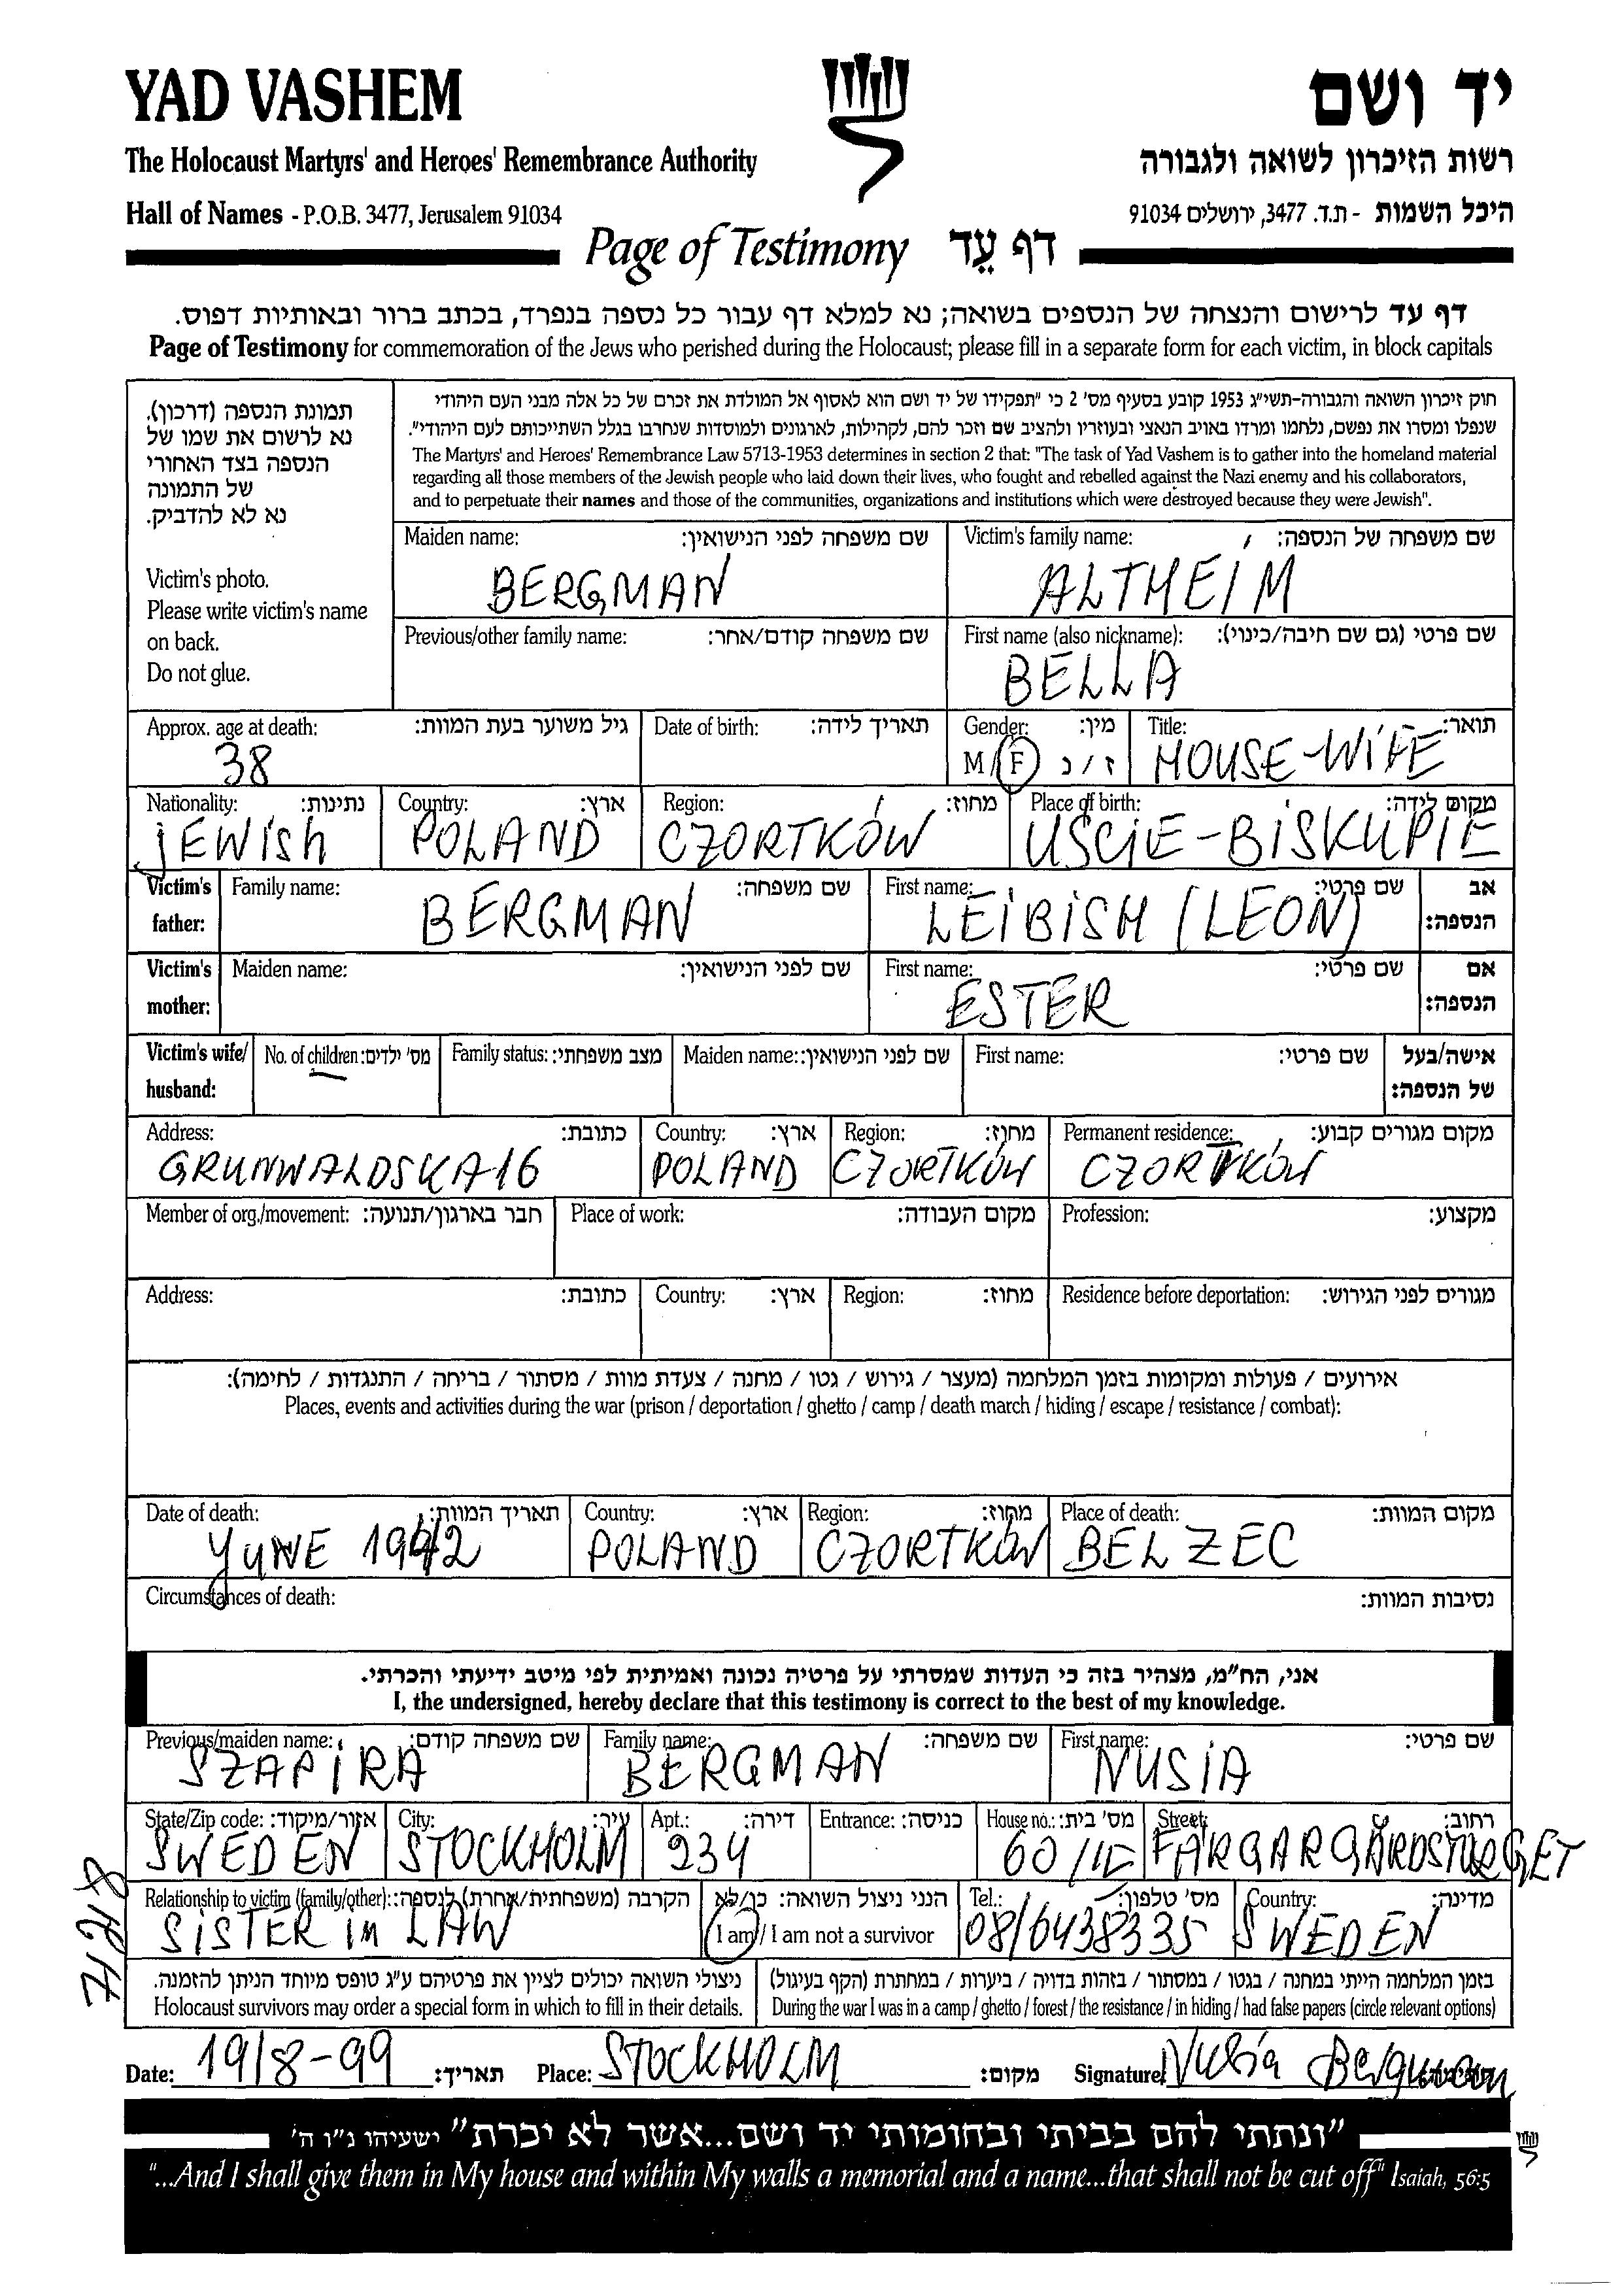 YAD VASHEM
יד ושם
The Holocaust Martyrs' and Heroes' Remembrance Authority
רשות הזיכרון לשואה ולגבורה
Hall of Names - P.O.B. 3477, Jerusalem 91034
היכל השמות - ת.ד. 3477, ירושלים 91034
Page of Testimony דף עֵד
דף עד לרישום והנצחה של הנספים בשואה; נא למלא דף עבור כל נספה בנפרד, בכתב ברור ובאותיות דפוס.
Page of Testimony for commemoration of the Jews who perished during the Holocaust; please fill in a separate form for each victim, in block capitals
תמונת הנספה (דרכון).
נא לרשום את שמו של
הנספה בצד האחורי
של התמונה
נא לא להדביק.
Victim's photo.
Please write victim's name
on back.
Do not glue.
חוק זיכרון השואה והגבורה-תשי"ג 1953 קובע בסעיף מס' 2 כי "תפקידו של יד ושם הוא לאסוף אל המולדת את זכרם של כל אלה מבני העם היהודי
שנפלו ומסרו את נפשם, נלחמו ומרדו באויב הנאצי ובעוזריו ולהציב שם וזכר להם, לקהילות, לארגונים ולמוסדות שנחרבו בגלל השתייכותם לעם היהודי".
The Martyrs' and Heroes' Remembrance Law 5713-1953 determines in section 2 that: "The task of Yad Vashem is to gather into the homeland material
regarding all those members of the Jewish people who laid down their lives, who fought and rebelled against the Nazi enemy and his collaborators,
and to perpetuate their names and those of the communities, organizations and institutions which were destroyed because they were Jewish".
Maiden name: שם משפחה לפני הנישואין: Victim's family name: שם משפחה של הנספה:
BERGMAN ALTHEIM
Previous/other family name: שם משפחה קודם/אחר: First name (also nickname): שם פרטי (גם שם חיבה/כינוי):
BELLA
Approx. age at death: גיל משוער בעת המוות: Date of birth: תאריך לידה: Gender: מין: Title: תואר:
38 M/F ז/נ HOUSE-WIFE
Nationality: נתינות: Country: ארץ: Region: מחוז: Place of birth: מקום לידה:
JEWISH POLAND CZORTKÓW UŚCIE-BISKUPIE
Victim's father: Family name: שם משפחה: First name: שם פרטי: אב הנספה:
BERGMAN LEIBISH (LEON)
Victim's mother: Maiden name: שם לפני הנישואין: First name: שם פרטי: אם הנספה:
ESTER
Victim's wife/husband: No. of children: מס' ילדים: Family status: מצב משפחתי: Maiden name: שם לפני הנישואין: First name: שם פרטי: אישה/בעל של הנספה:
Address: כתובת: Country: ארץ: Region: מחוז: Permanent residence: מקום מגורים קבוע:
GRUNWALDSKA 16 POLAND CZORTKÓW CZORTKÓW
Member of org./movement: חבר בארגון/תנועה: Place of work: מקום העבודה: Profession: מקצוע:
Address: כתובת: Country: ארץ: Region: מחוז: Residence before deportation: מגורים לפני הגירוש:
אירועים / פעולות ומקומות בזמן המלחמה (מעצר / גירוש / גטו / מחנה / צעדת מוות / מסתור / בריחה / התנגדות / לחימה):
Places, events and activities during the war (prison / deportation / ghetto / camp / death march / hiding / escape / resistance / combat):
Date of death: תאריך המוות: Country: ארץ: Region: מחוז: Place of death: מקום המוות:
YUNE 1942 POLAND CZORTKÓW BELZEC
Circumstances of death: נסיבות המוות:
אני, הח"מ, מצהיר בזה כי העדות שמסרתי על פרטיה נכונה ואמיתית לפי מיטב ידיעתי והכרתי.
I, the undersigned, hereby declare that this testimony is correct to the best of my knowledge.
Previous/maiden name: שם משפחה קודם: Family name: שם משפחה: First name: שם פרטי:
SZAPIRA BERGMAN NUSIA
State/Zip code: אזור/מיקוד: City: עיר: Apt.: דירה: Entrance: כניסה: House no.: מס' בית: Street: רחוב:
SWEDEN STOCKHOLM 234 60
Relationship to victim (family/other): הקרבה (משפחתית/אחרת) לנספה: הנני ניצול השואה: כן/לא Tel.: מס' טלפון: Country: מדינה:
SISTER IN LAW I am / I am not a survivor 08/6438335 SWEDEN
ניצולי השואה יכולים לציין את פרטיהם ע"ג טופס מיוחד הניתן להזמנה. בזמן המלחמה הייתי במחנה / בגטו / במסתור / בזהות בדויה / ביערות / במחתרת (הקף בעיגול)
Holocaust survivors may order a special form in which to fill in their details. During the war I was in a camp / ghetto / forest / the resistance / in hiding / had false papers (circle relevant options)
Date: 19/8-99 תאריך: Place: STOCKHOLM מקום: Signature: Nusia Bergman
"ונתתי להם בביתי ובחומותי יד ושם...אשר לא יכרת" ישעיהו נ"ו ה'
"...And I shall give them in My house and within My walls a memorial and a name...that shall not be cut off" Isaiah, 56:5